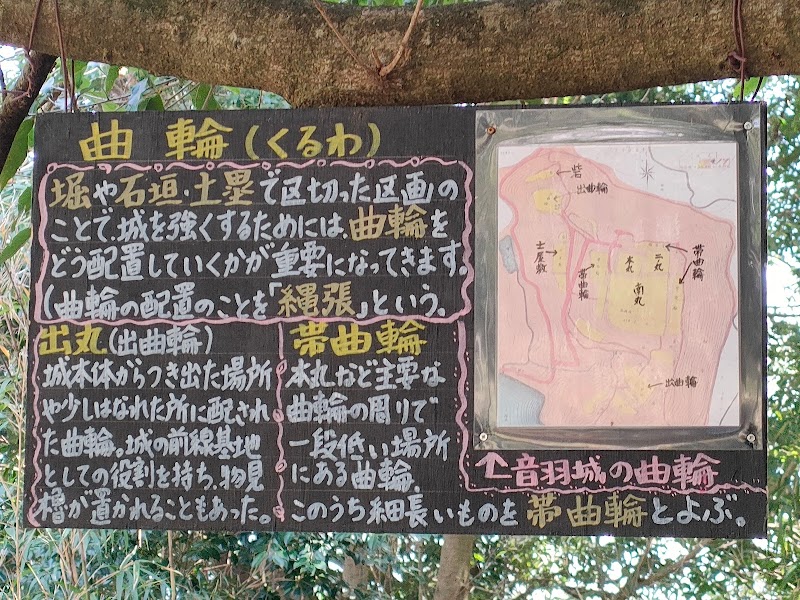 曲輪(くるわ)
堀や石垣・土塁で区切った区画の
ことで、城を強くするためには、曲輪を
どう配置していくかが重要になってきます。
(曲輪の配置のことを「縄張」という。
出丸(出曲輪)
城本体からつき出た場所
や少しはなれた所に配され
た曲輪。城の前線基地
としての役割を持ち、物見
櫓が置かれることもあった。
帯曲輪
本丸など主要な
曲輪の周りで
一段低い場所
にある曲輪。
このうち細長いものを帯曲輪とよぶ。
砦
出曲輪
士屋敷
帯曲輪
本丸
二丸
南丸
帯曲輪
出曲輪
↑音羽城の曲輪